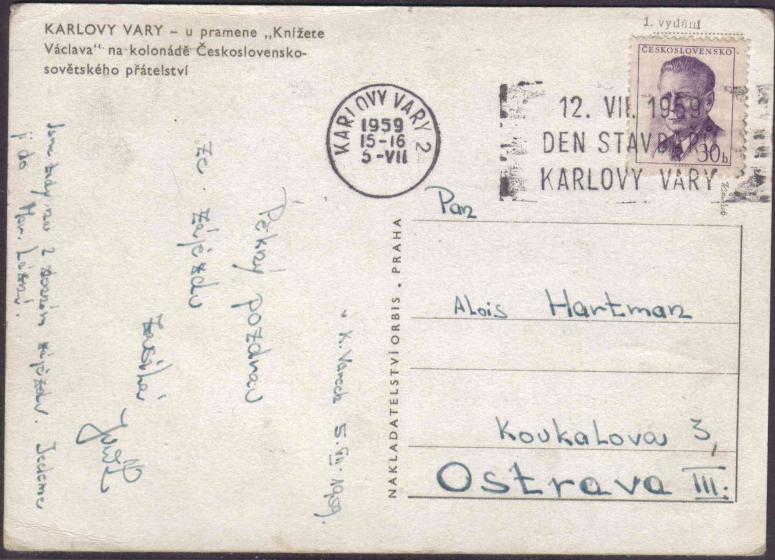 KARLOVY VARY – u pramene „Knížete
Václava" na kolonádě Československo-
sovětského přátelství
1. vydání
ČESKOSLOVENSKO
30h
KARLOVY VARY 2
1959
15-16
5-VII
12. VII. 1959
DEN STAVBAŘŮ
KARLOVY VARY
K. Vary 5. VII. 1959.
Pěkný pozdrav
ze zájezdu
zasílá
Jsme tady na 2 zájezdu. Jedeme
i do Mar. Lázní.
NAKLADATELSTVÍ ORBIS · PRAHA
Pan
Alois Hartman
Koukalova 3,
Ostrava III.